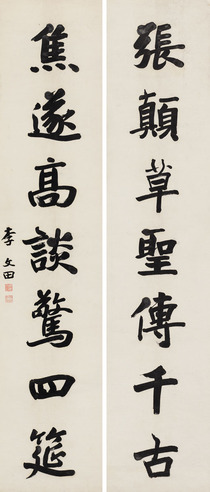 張顛草聖傳千古
焦遂高談驚四筵
李文田